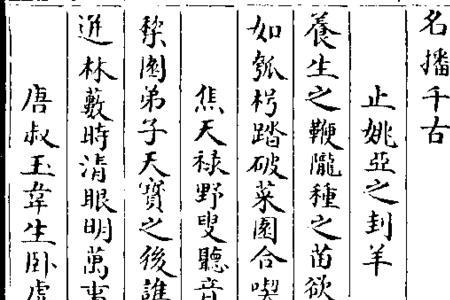 名播千古
止姚亞之封羊
養生之鞭隴種之苗欲
如瓠枵踏破菜園合喫
焦天祿野叟聽音
棃園弟子天寶之後誰
近林藪時清眼明萬事
唐叔玉韋生卧